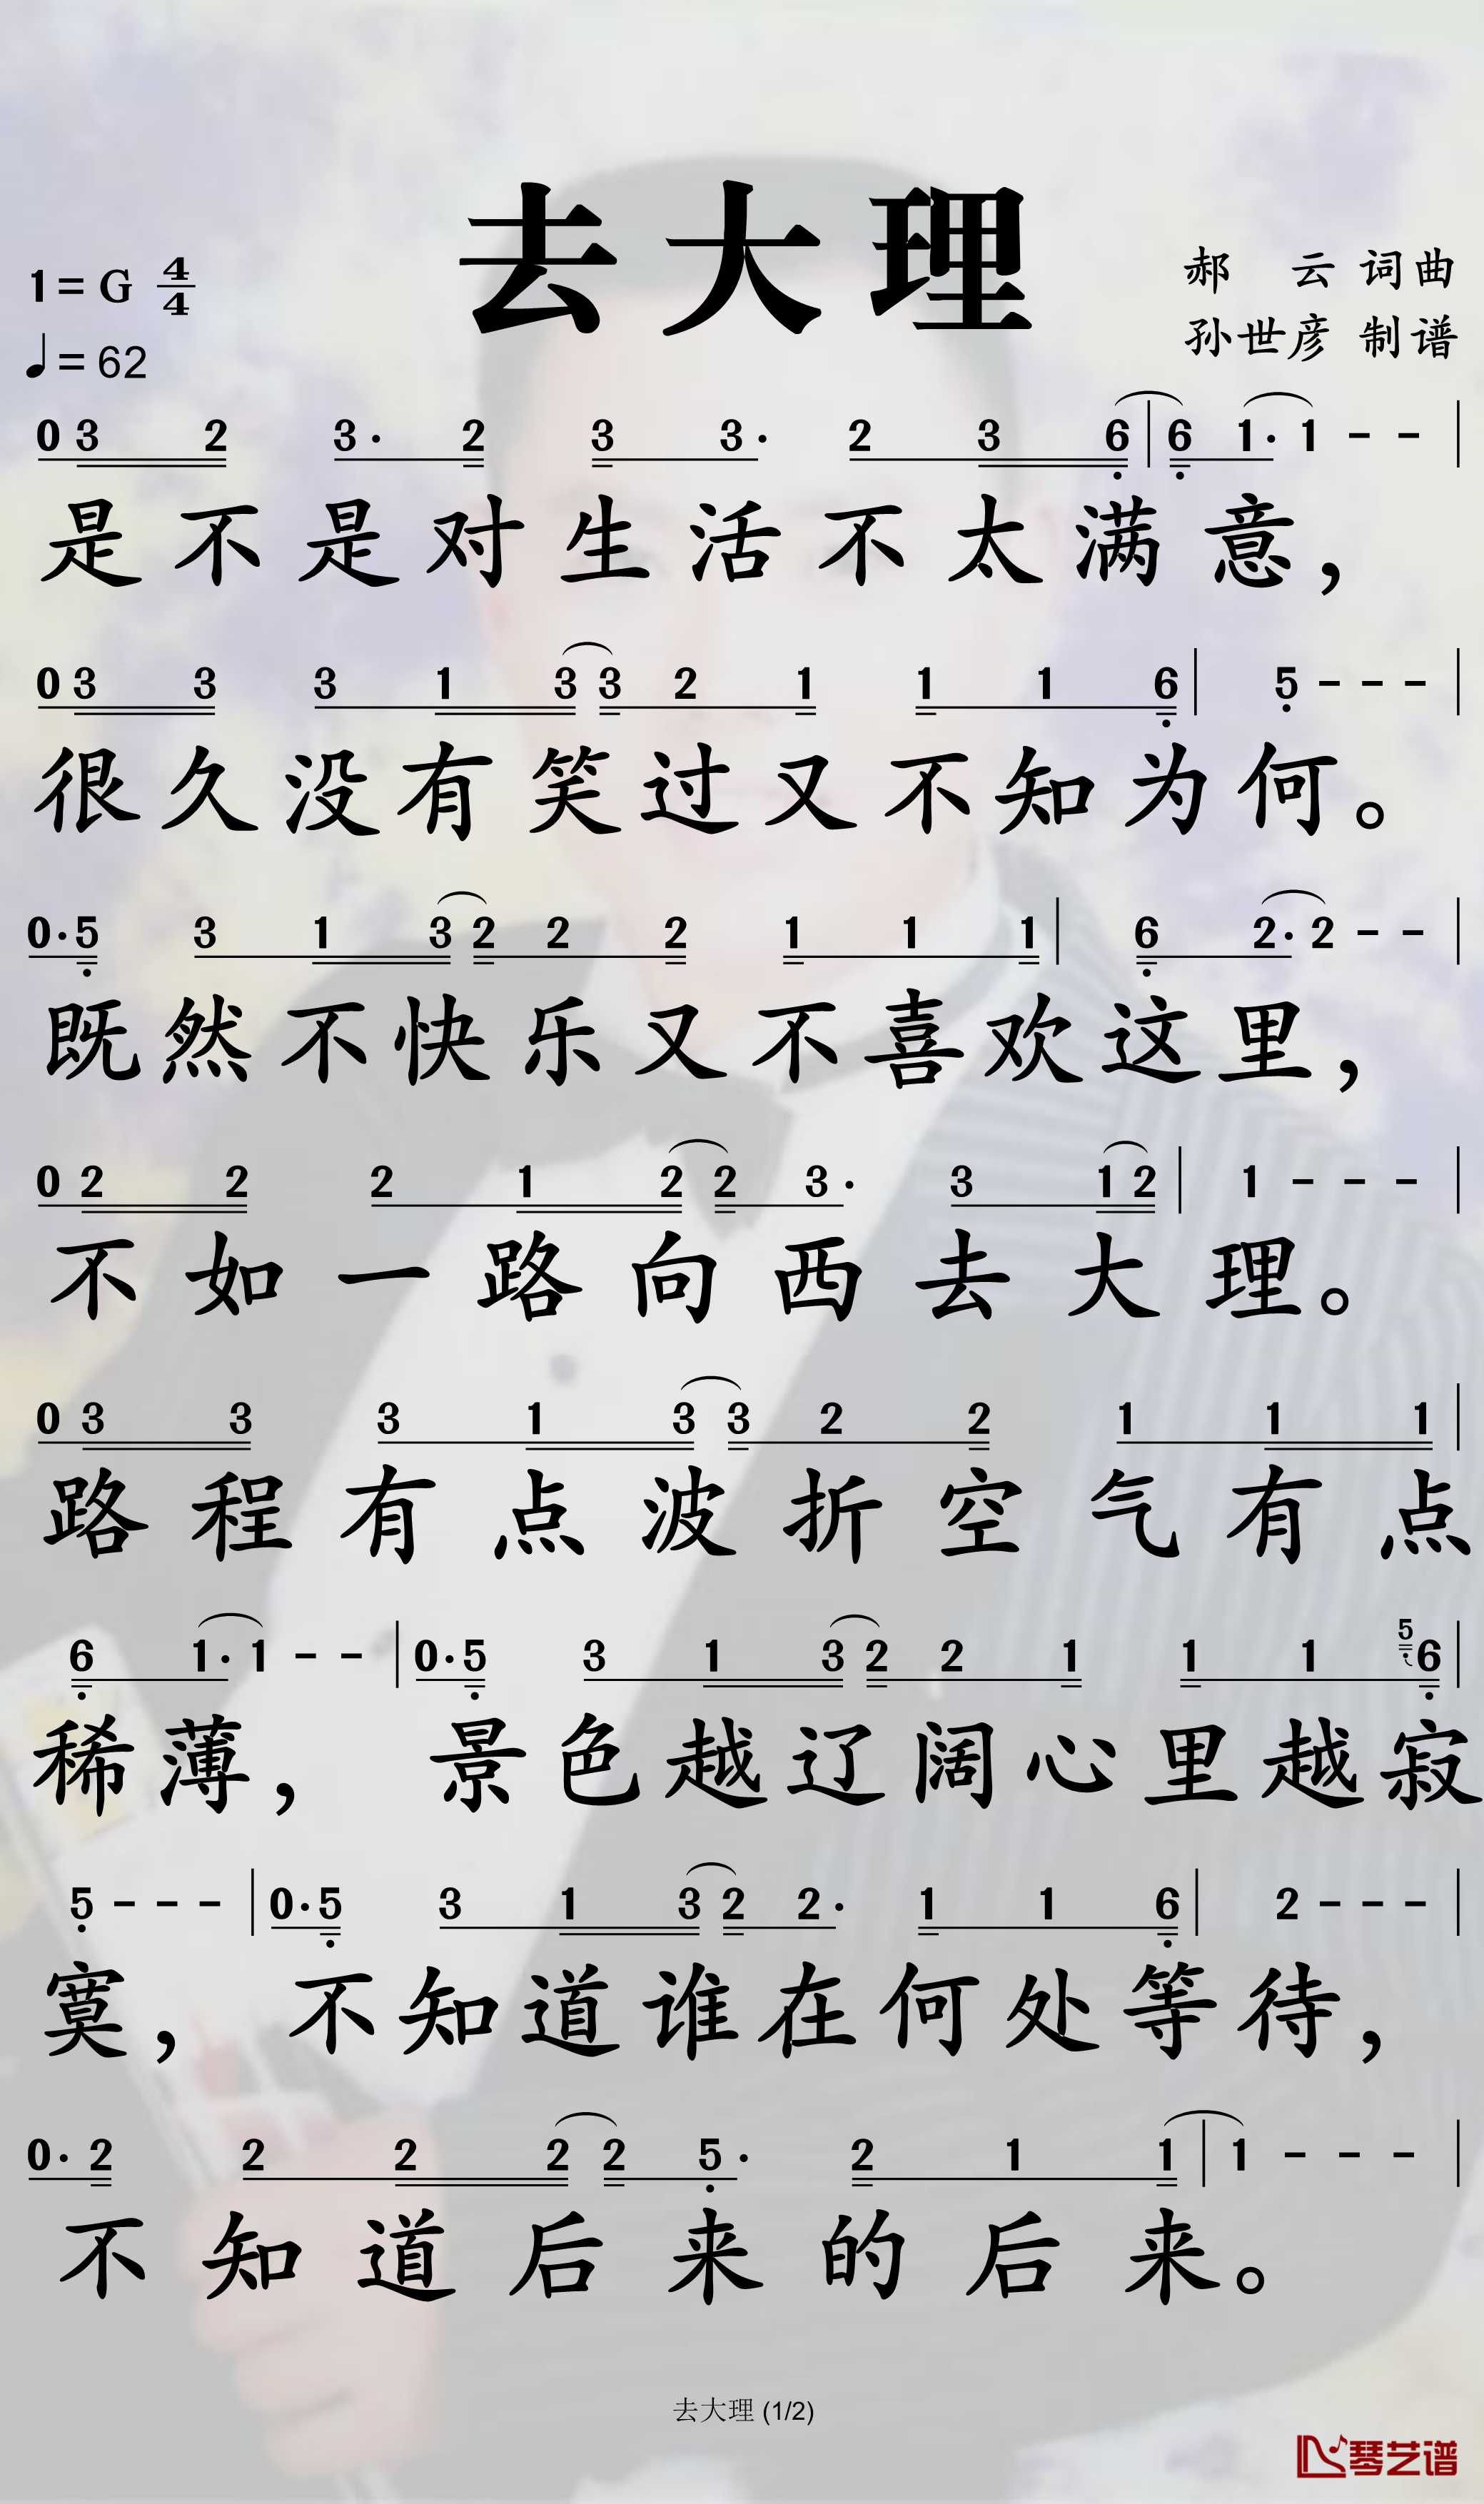 去大理
1=G 4/4
♩=62
郝 云 词曲
孙世彦 制谱
0 3 2 3· 2 3 3· 2 3 6 | 6 1· 1 - - |
是不是对生活不太满意，
0 3 3 3 1 3 3 2 1 1 1 6 | 5 - - - |
很久没有笑过又不知为何。
0· 5 3 1 3 2 2 2 1 1 1 | 6 2· 2 - - |
既然不快乐又不喜欢这里，
0 2 2 2 1 2 2 3· 3 1 2 | 1 - - - |
不如一路向西去大理。
0 3 3 3 1 3 3 2 2 1 1 1 |
路程有点波折空气有点
6 1· 1 - - | 0· 5 3 1 3 2 2 1 1 1 5 6 |
稀薄，景色越辽阔心里越寂
5 - - - | 0· 5 3 1 3 2 2· 1 1 6 | 2 - - - |
寞，不知道谁在何处等待，
0· 2 2 2 2 2 5· 2 1 1 | 1 - - - |
不知道后来的后来。
去大理 (1/2)
琴艺谱